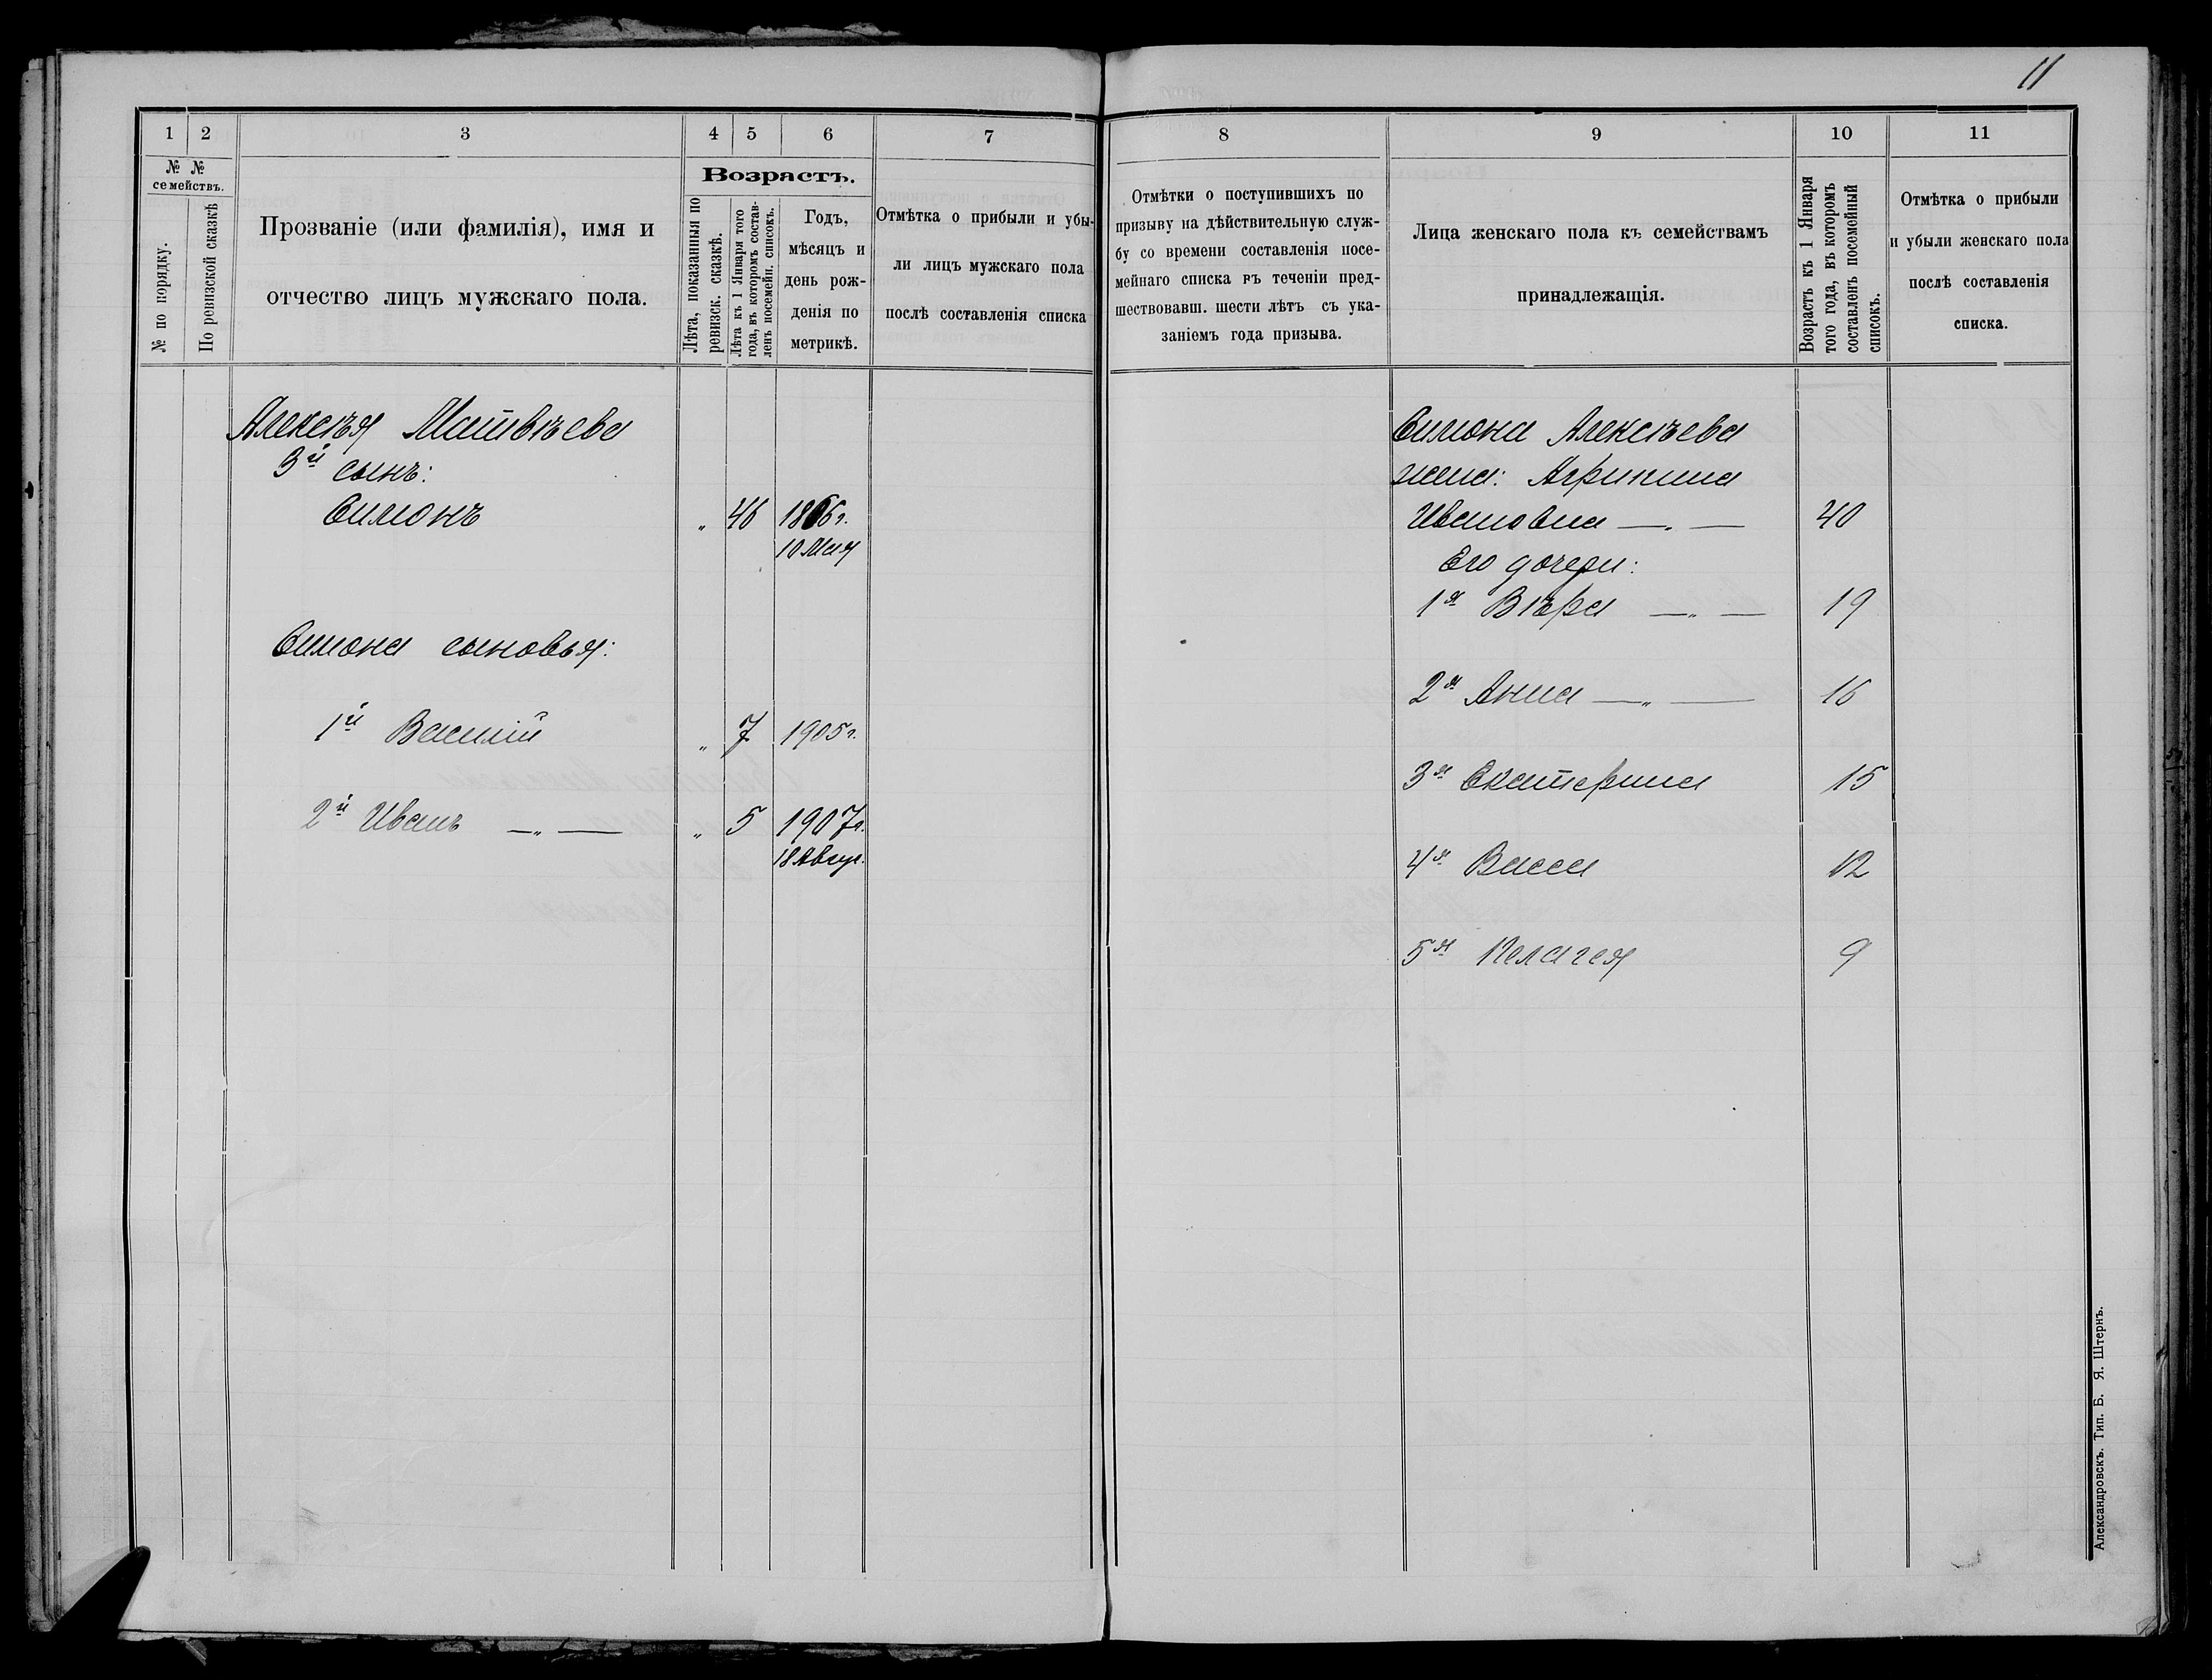 11
1 2 3 4 5 6 7
№ № семействъ.
№ по порядку.
По ревизской сказкѣ
Прозваніе (или фамилія), имя и
отчество лицъ мужскаго пола.
Возрастъ.
Лѣта, показанныя по
ревизск. сказкѣ.
Лѣта къ 1 Января того
года, въ которомъ состав-
ленъ посемейн. списокъ.
Годъ,
мѣсяцъ и
день рож-
денія по
метрикѣ.
Отмѣтка о прибыли и убы-
ли лицъ мужскаго пола
послѣ составленія списка
Алексѣя Матвѣева
3й сынъ:
Симонъ „ 46 1866 г.
10 Мая
Симона сыновья:
1й Василій „ 7 1905 г.
2й Иванъ — „ — „ 5 1907 г.
18 Авгус.
8 9 10 11
Отмѣтки о поступившихъ по
призыву на дѣйствительную служ-
бу со времени составленія посе-
мейнаго списка въ теченіи пред-
шествовавш. шести лѣтъ съ ука-
заніемъ года призыва.
Лица женскаго пола къ семействамъ
принадлежащія.
Возрастъ къ 1 Января
того года, въ которомъ
составленъ посемейный
списокъ.
Отмѣтка о прибыли
и убыли женскаго пола
послѣ составленія
списка.
Симона Алексѣева
жена: Агрипина
Ивановна — „ — 40
Его дочери:
1я Вѣра — „ — 19
2я Анна — „ — 16
3я Екатерина 15
4я Васса 12
5я Пелагея 9
Александровскъ. Тип. Б. Я. Штернъ.